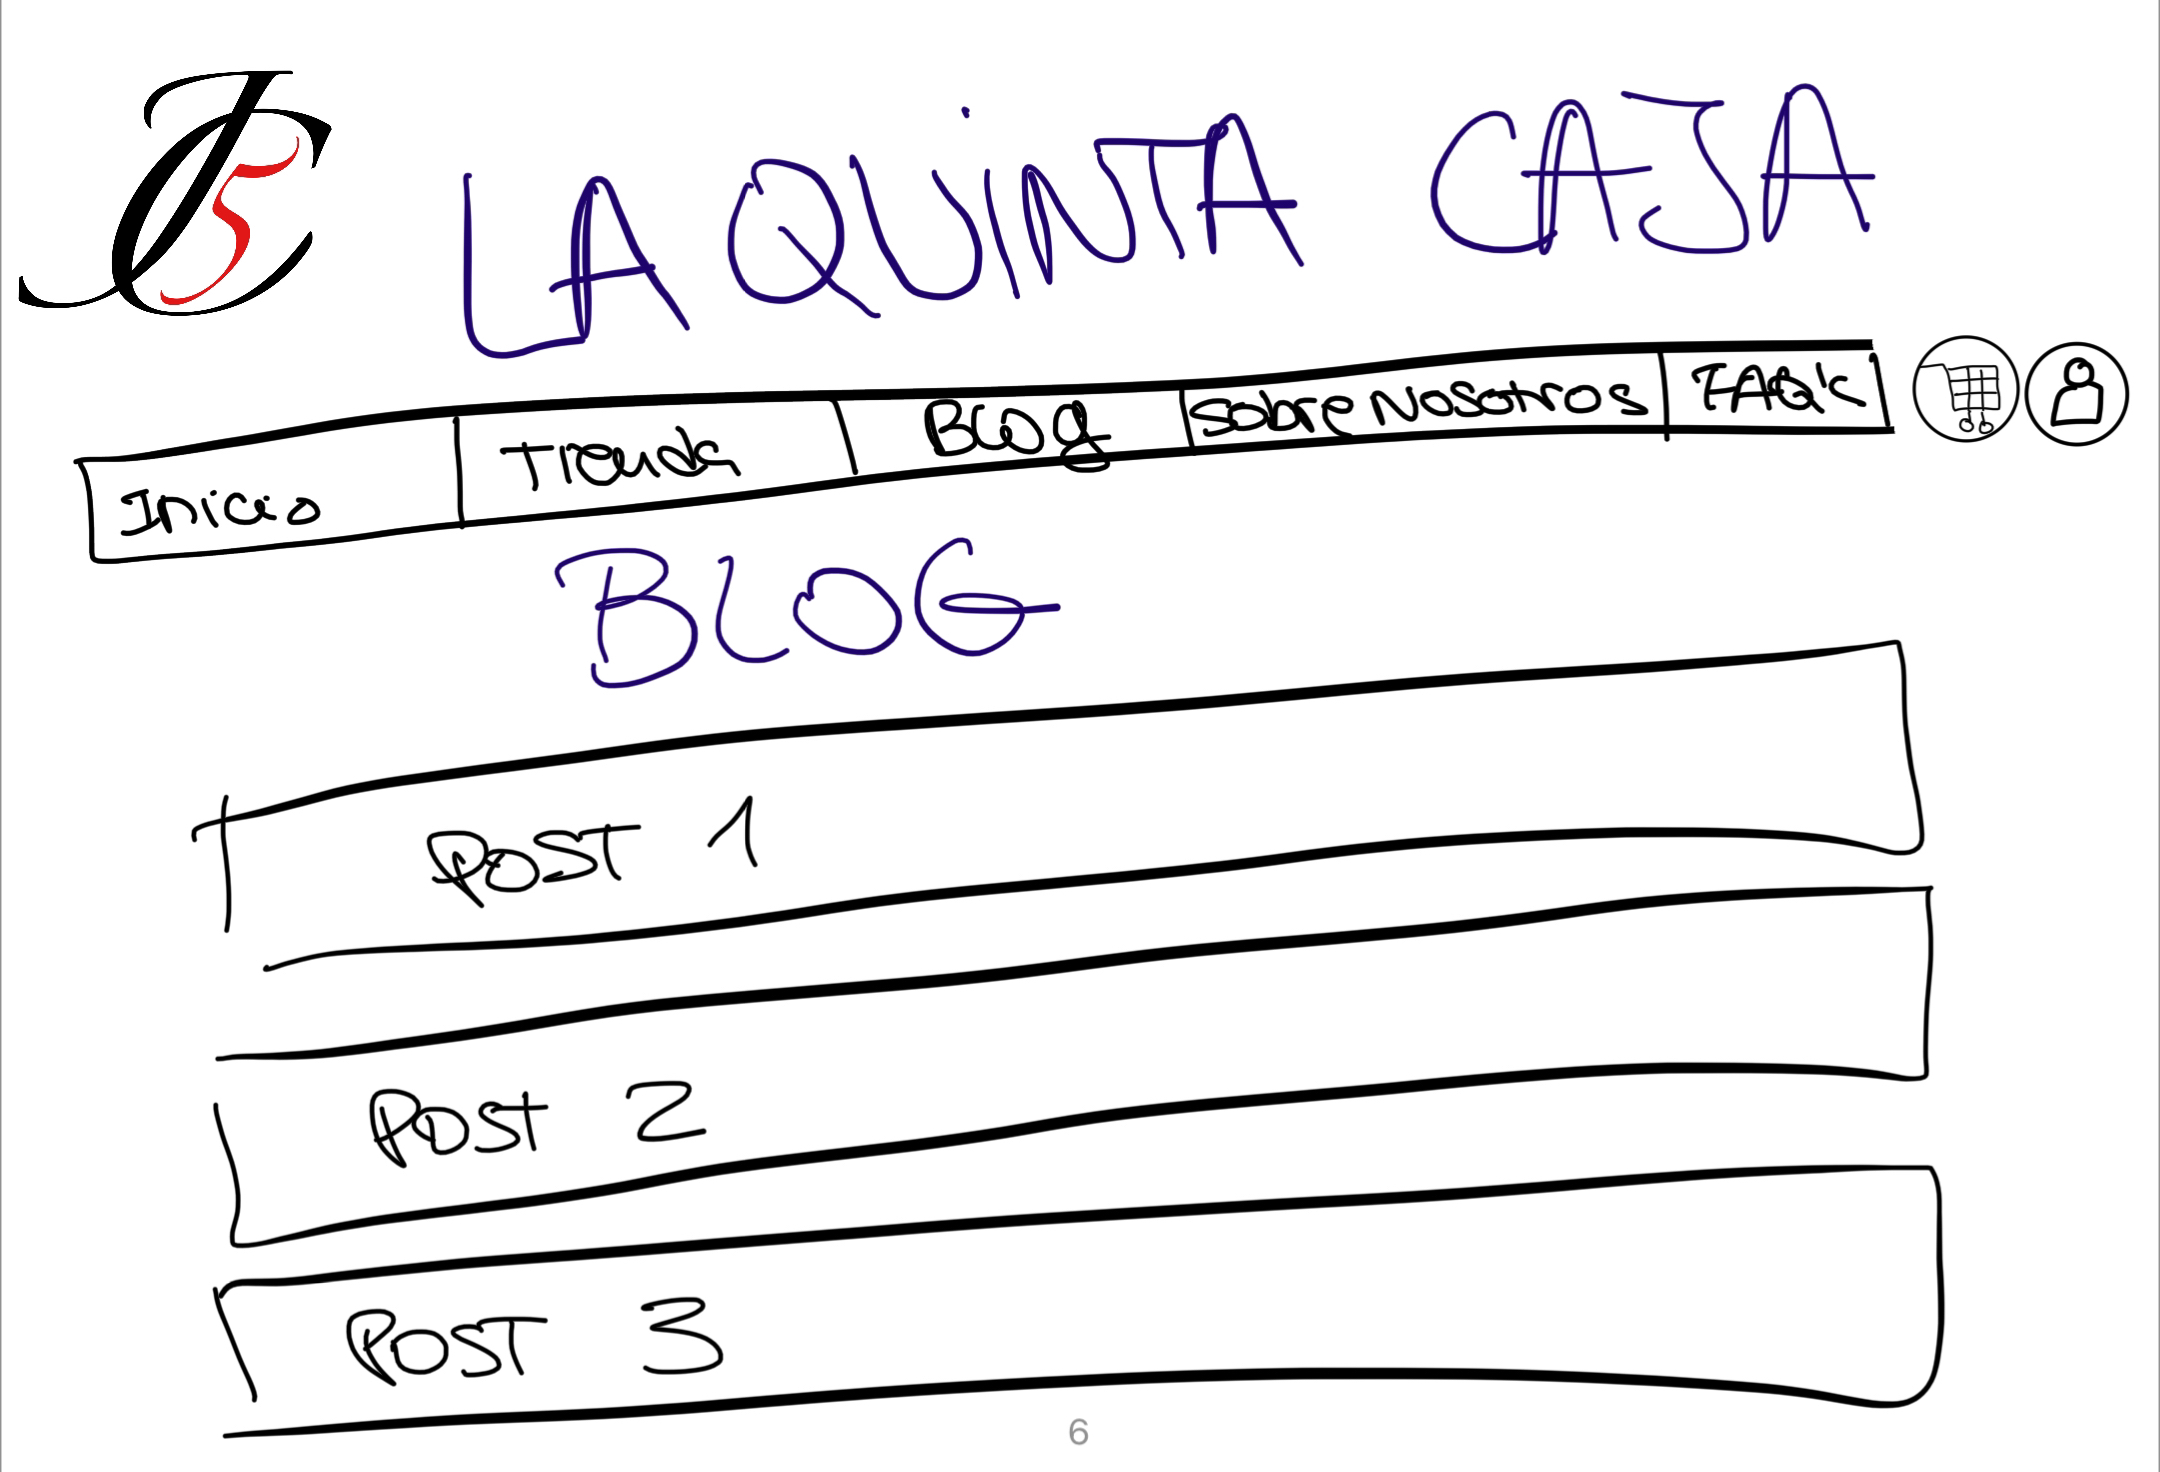 LA QUINTA CAJA
Inicio Tienda Blog Sobre Nosotros FAQ's
BLOG
POST 1
POST 2
POST 3
6